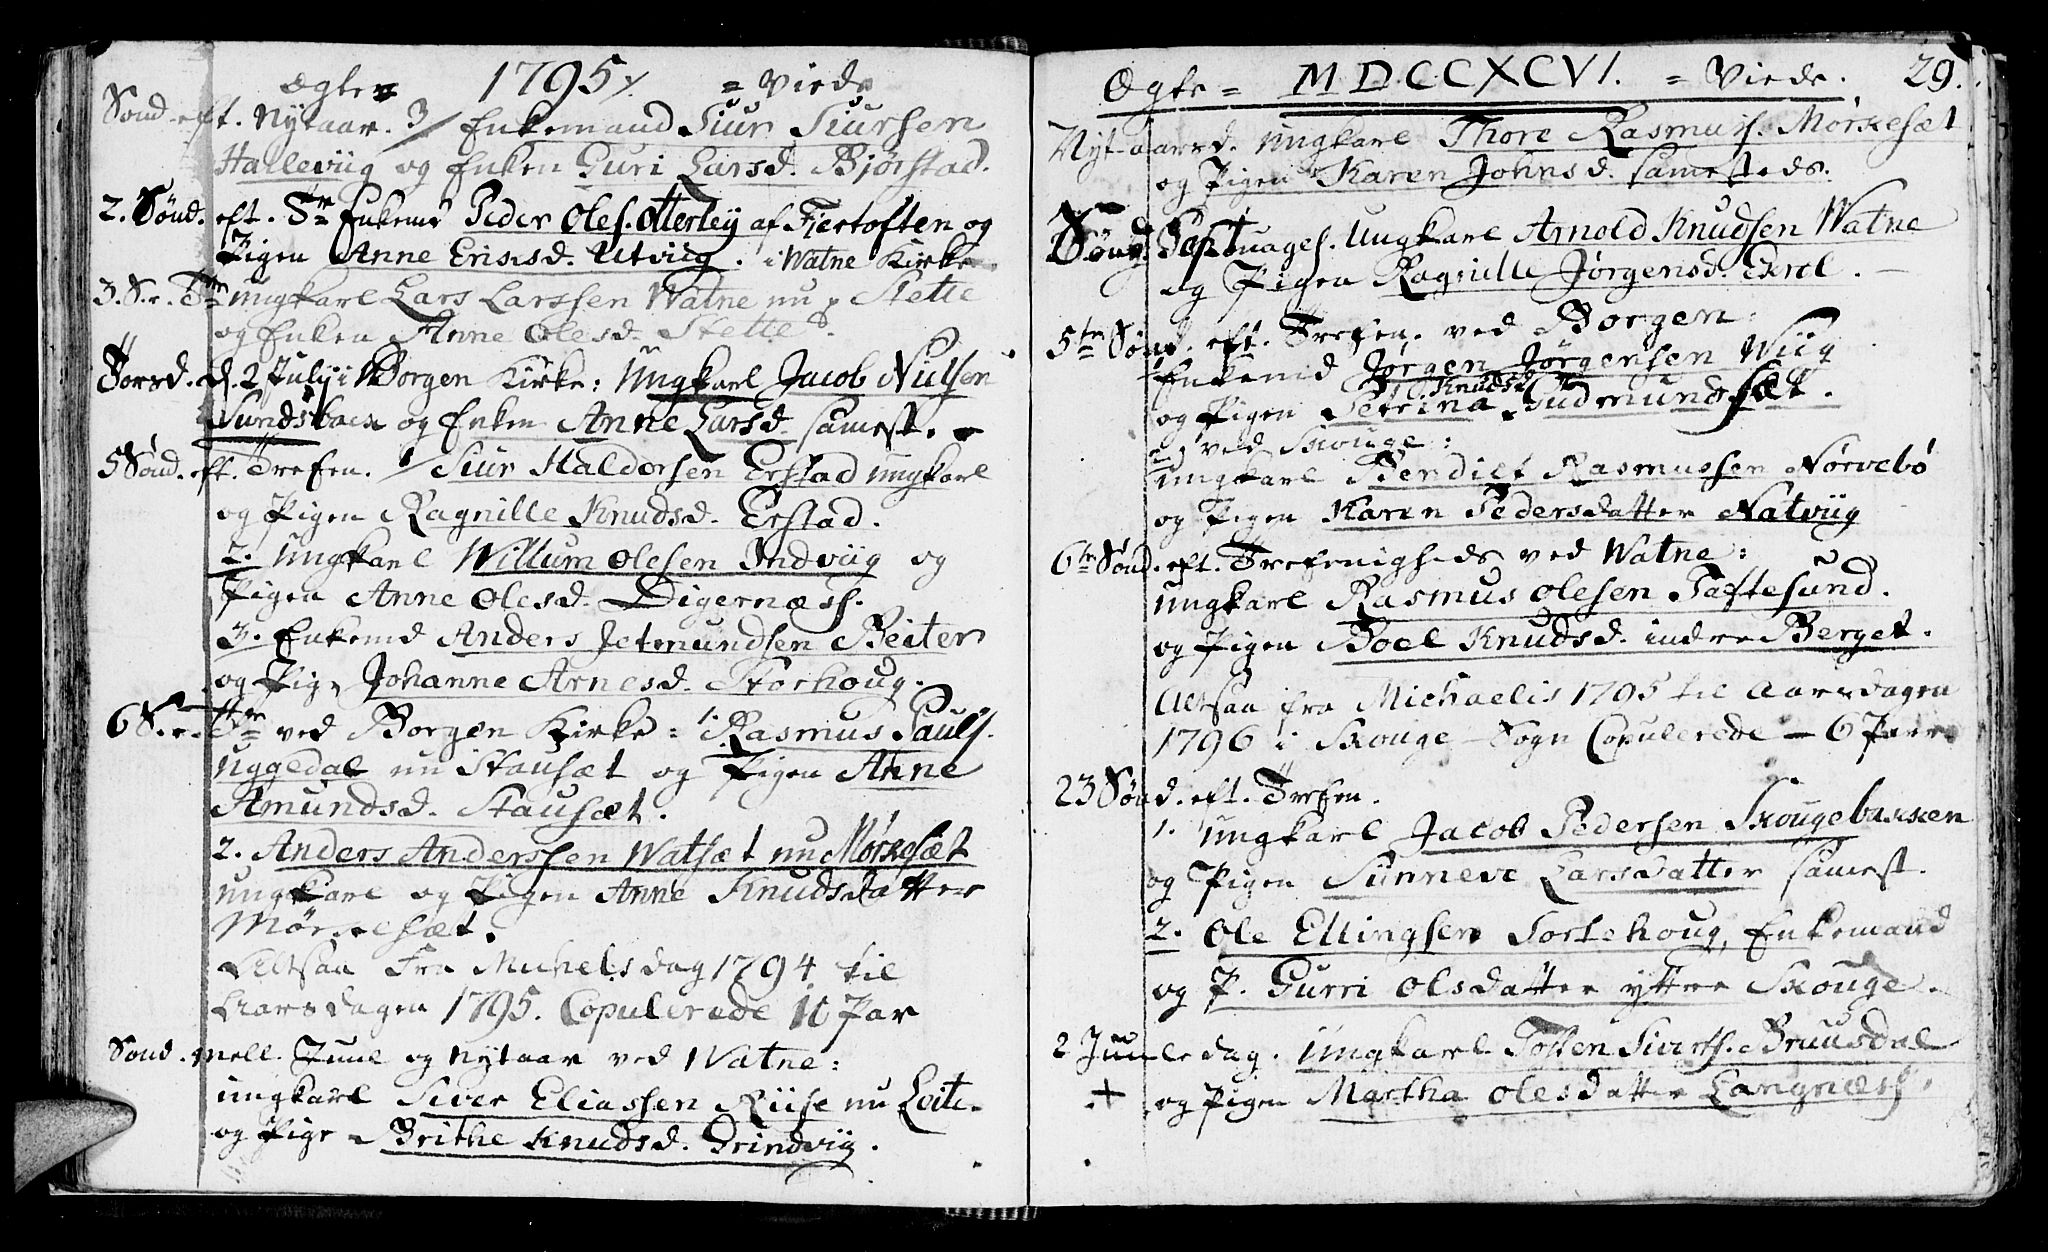 Ægte 1795 = Viede
Sønd. eft. Nytaar. 3/ Enkemand Siur Siursen
Halleviig og Enken Guri Larsd. Bjørstad.
2. Sønd. eft. Enkemd Peder Oles. Otterley af Fiertoften og
Pigen Anne Ericsd. Utviig. i Watne Kirke.
3. S. e. Ungkarl Lars Larssen Watne nu Stette
og Enken Anne Olesd. Stette.
Torsd. d. 2 July i Borgen Kirke: Ungkarl Jacob Nielsen
Sundsback og Enken Anne Larsd. samest.
5 Sønd. eft. Trefen. 1/ Siur Haldorsen Erstad Ungkarl
og Pigen Ragnille Knudsd. Erstad.
2. Ungkarl Willum Olesen Indviig og
Pigen Anne Olesd. Digernæss.
3. Enkemd Anders Jetmundsen Beiter
og Pig. Johanne Arnesd. Storhoug.
6 S. e. Tr ved Borgen Kirke: 1. Rasmus Pauls.
Uggedal nu Stausæt og Pigen Anne
Amundsd. Stausæt.
2. Anders Anderssen Watsæt nu Mørkesæt
Ungkarl og Pigen Anne Knudsdatter
Mørkesæt.
Altsaa Fra Michelsdag 1794 til
Aarsdagen 1795. Copulerede 10 Par
Sønd. mell. Juul og Nytaar ved Watne:
Ungkarl Siver Eliassen Riise nu Leite
og Pige Brithe Knudsd. Grindviig.
Ægte = MDCCXCVI. = Viede. 29.
Nyt-aarsd. Ungkarl Thore Rasmuss. Mørkesæt
og Pigen Karen Johnsd. samesteds.
Sønd. Septuages. Ungkarl Arnold Knudsen Watne
og Pigen Ragnille Jørgensd. Exel.
5te Sønd. eft. Trefen. ved Borgen:
Enkemd Jørgen Jørgensen Wiig
og Pigen Petrina Knudsd. Gudmundsæt.
ved Skouge:
Ungkarl Bendict Rasmussen Nørvebø
og Pigen Karen Pedersdatter Natviig
6te Sønd. eft. Trefenigheds ved Watne:
Ungkarl Rasmus Olesen Taftesund.
og Pigen Boel Knudsd. indre Berget.
Altsaa fra Michaelis 1795 til Aarsdagen
1796 i Skouge-Sogn Copulerede - 6 Par
23 Sønd. eft. Trefen.
1. Ungkarl Jacob Pedersen Skougebakken
og Pigen Sünneve Larsdatter samest.
2. Ole Ellingsen Tortehoug, Enkemand
og P. Gurri Olsdatter ytre Skouge.
2 Juuledag. Ungkarl Tosten Siverts. Bruusdal
+ og Pigen Martha Olesdatter Langnæss.